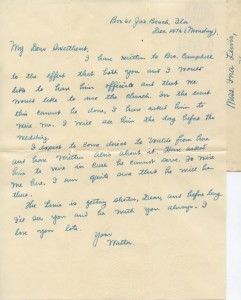 Box 61 Jax Beach, Fla
Dec 14th (Monday).
My Dear Sweetheart,
I have written to Bro. Campbell
to the effect that both you and I would
like to have him officiate and that we
would like to use the Church. In the event
this cannot be done, I have asked him to
wire me. I will see him the day before the
wedding.
I expect to come direct to Ualds from here
and have written about it. Have asked
him to wire in case he cannot serve. To wire
me here. I am quite sure that he will be
there.
The time is getting shorter, Dear, and before long
I'll see you and be with you always. I
love you lots.
Your
Walter.
Miss. Inez Lewis,